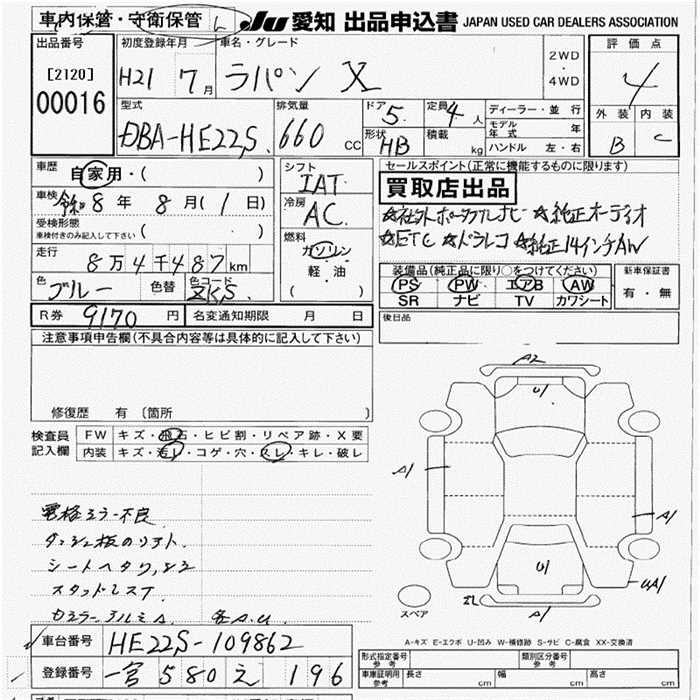 車内保管・守衛保管
JU 愛知 出品申込書 JAPAN USED CAR DEALERS ASSOCIATION
出品番号 [2120] 00016
初度登録年月 H21 7月
車名・グレード ラパン X
2WD・4WD
評価点 4
外装 B 内装 C
型式 DBA-HE22S
排気量 660 CC
ドア 5 定員 4人
形状 HB 積載 kg
ディーラー・並行
モデル年式 年
ハンドル 左・右
車歴 自家用・( )
車検 令和8年 8月(1日)
受検形態 ( )
車検付きのみ記入して下さい
走行 8万4千487km
色 ブルー 色替 色コード ZKS
シフト IAT
冷房 AC
燃料 ガソリン
軽・油
( )
セールスポイント(正常に機能するものに限ります)
買取店出品
☆社外ポータブルナビ ☆純正オーディオ
☆ETC ☆ドラレコ ☆純正14インチAW
装備品(純正品に限り○をつけてください)
PS PW エアB AW
SR ナビ TV カワシート
新車保証書
有・無
R券 9170円 名変通知期限 月 日
後日品
注意事項申告欄(不具合内容等は具体的に記入して下さい)
修復歴 有 〔箇所 〕
検査員記入欄
FW キズ・飛石・ヒビ割・リペア跡・X要
内装 キズ・汚レ・コゲ・穴・スレ・キレ・破レ
電格ミラー不良
ダッシュ板のリフト
シートヘタリ
A2
U1
A1
A1
U1
UA1
A1
スペア
A-キズ E-エクボ U-凹み W-補修跡 S-サビ C-腐食 XX-交換済
車台番号 HE22S-109862
登録番号 一宮 580 え 196
形式指定番号 参考
類別区分番号 参考
車庫証明用 参考 長さ cm 幅 cm 高さ cm